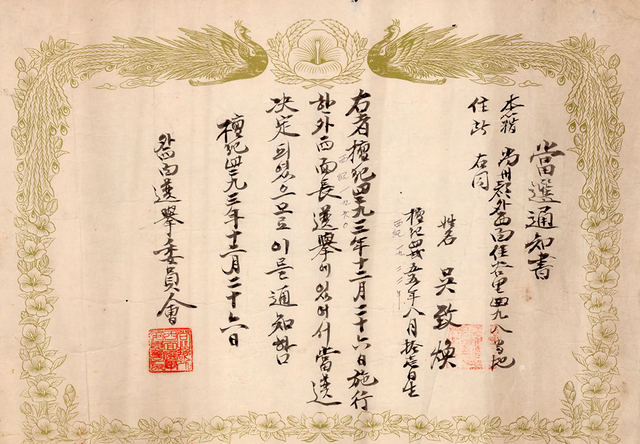 當選通知書
本籍 尚州郡外西面 里四九八番地
住所 右同
姓名 吳致煥
檀紀四二五五年八月 日生
右者檀紀四二九三年十二月二十六日施行
한 外西面長選擧에있어서當選
決定되었으므로이를通知함
檀紀四二九三年十二月二十六日
外西面選擧委員會